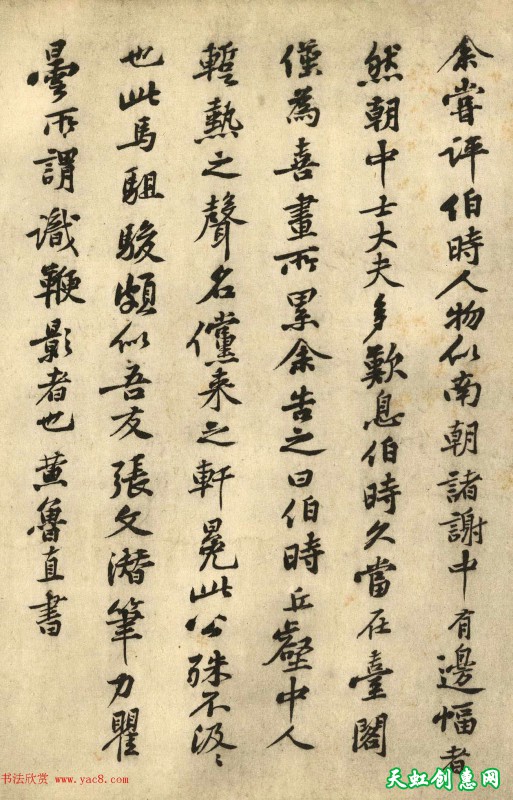 余嘗評伯時人物似南朝諸謝中有邊幅者
然朝中士大夫多歎息伯時久當在臺閣
僅為喜畫所累余告之曰伯時丘壑中人
蹔熱之聲名儻来之軒冕此公殊不汲〻
也此馬駔駿頗似吾友張文潜筆力瞿
曇所謂識鞭影者也黄魯直書
书法欣赏 www.yac8.com
天虹创惠网